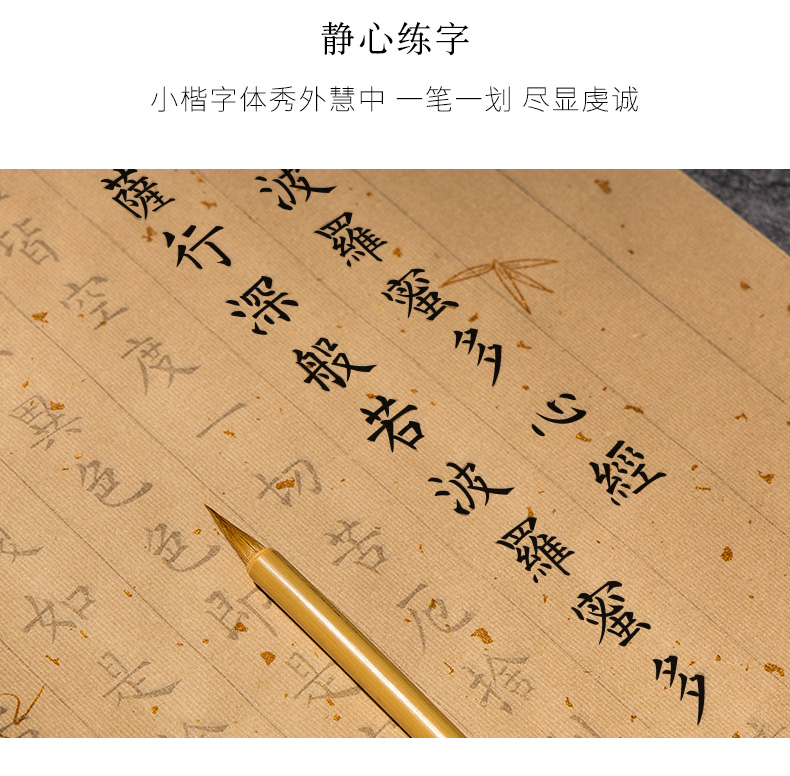 静心练字
小楷字体秀外慧中 一笔一划 尽显虔诚
波羅蜜多心經
薩行深般若波羅蜜多
皆空度一切苦厄捨
異色色即是
如是